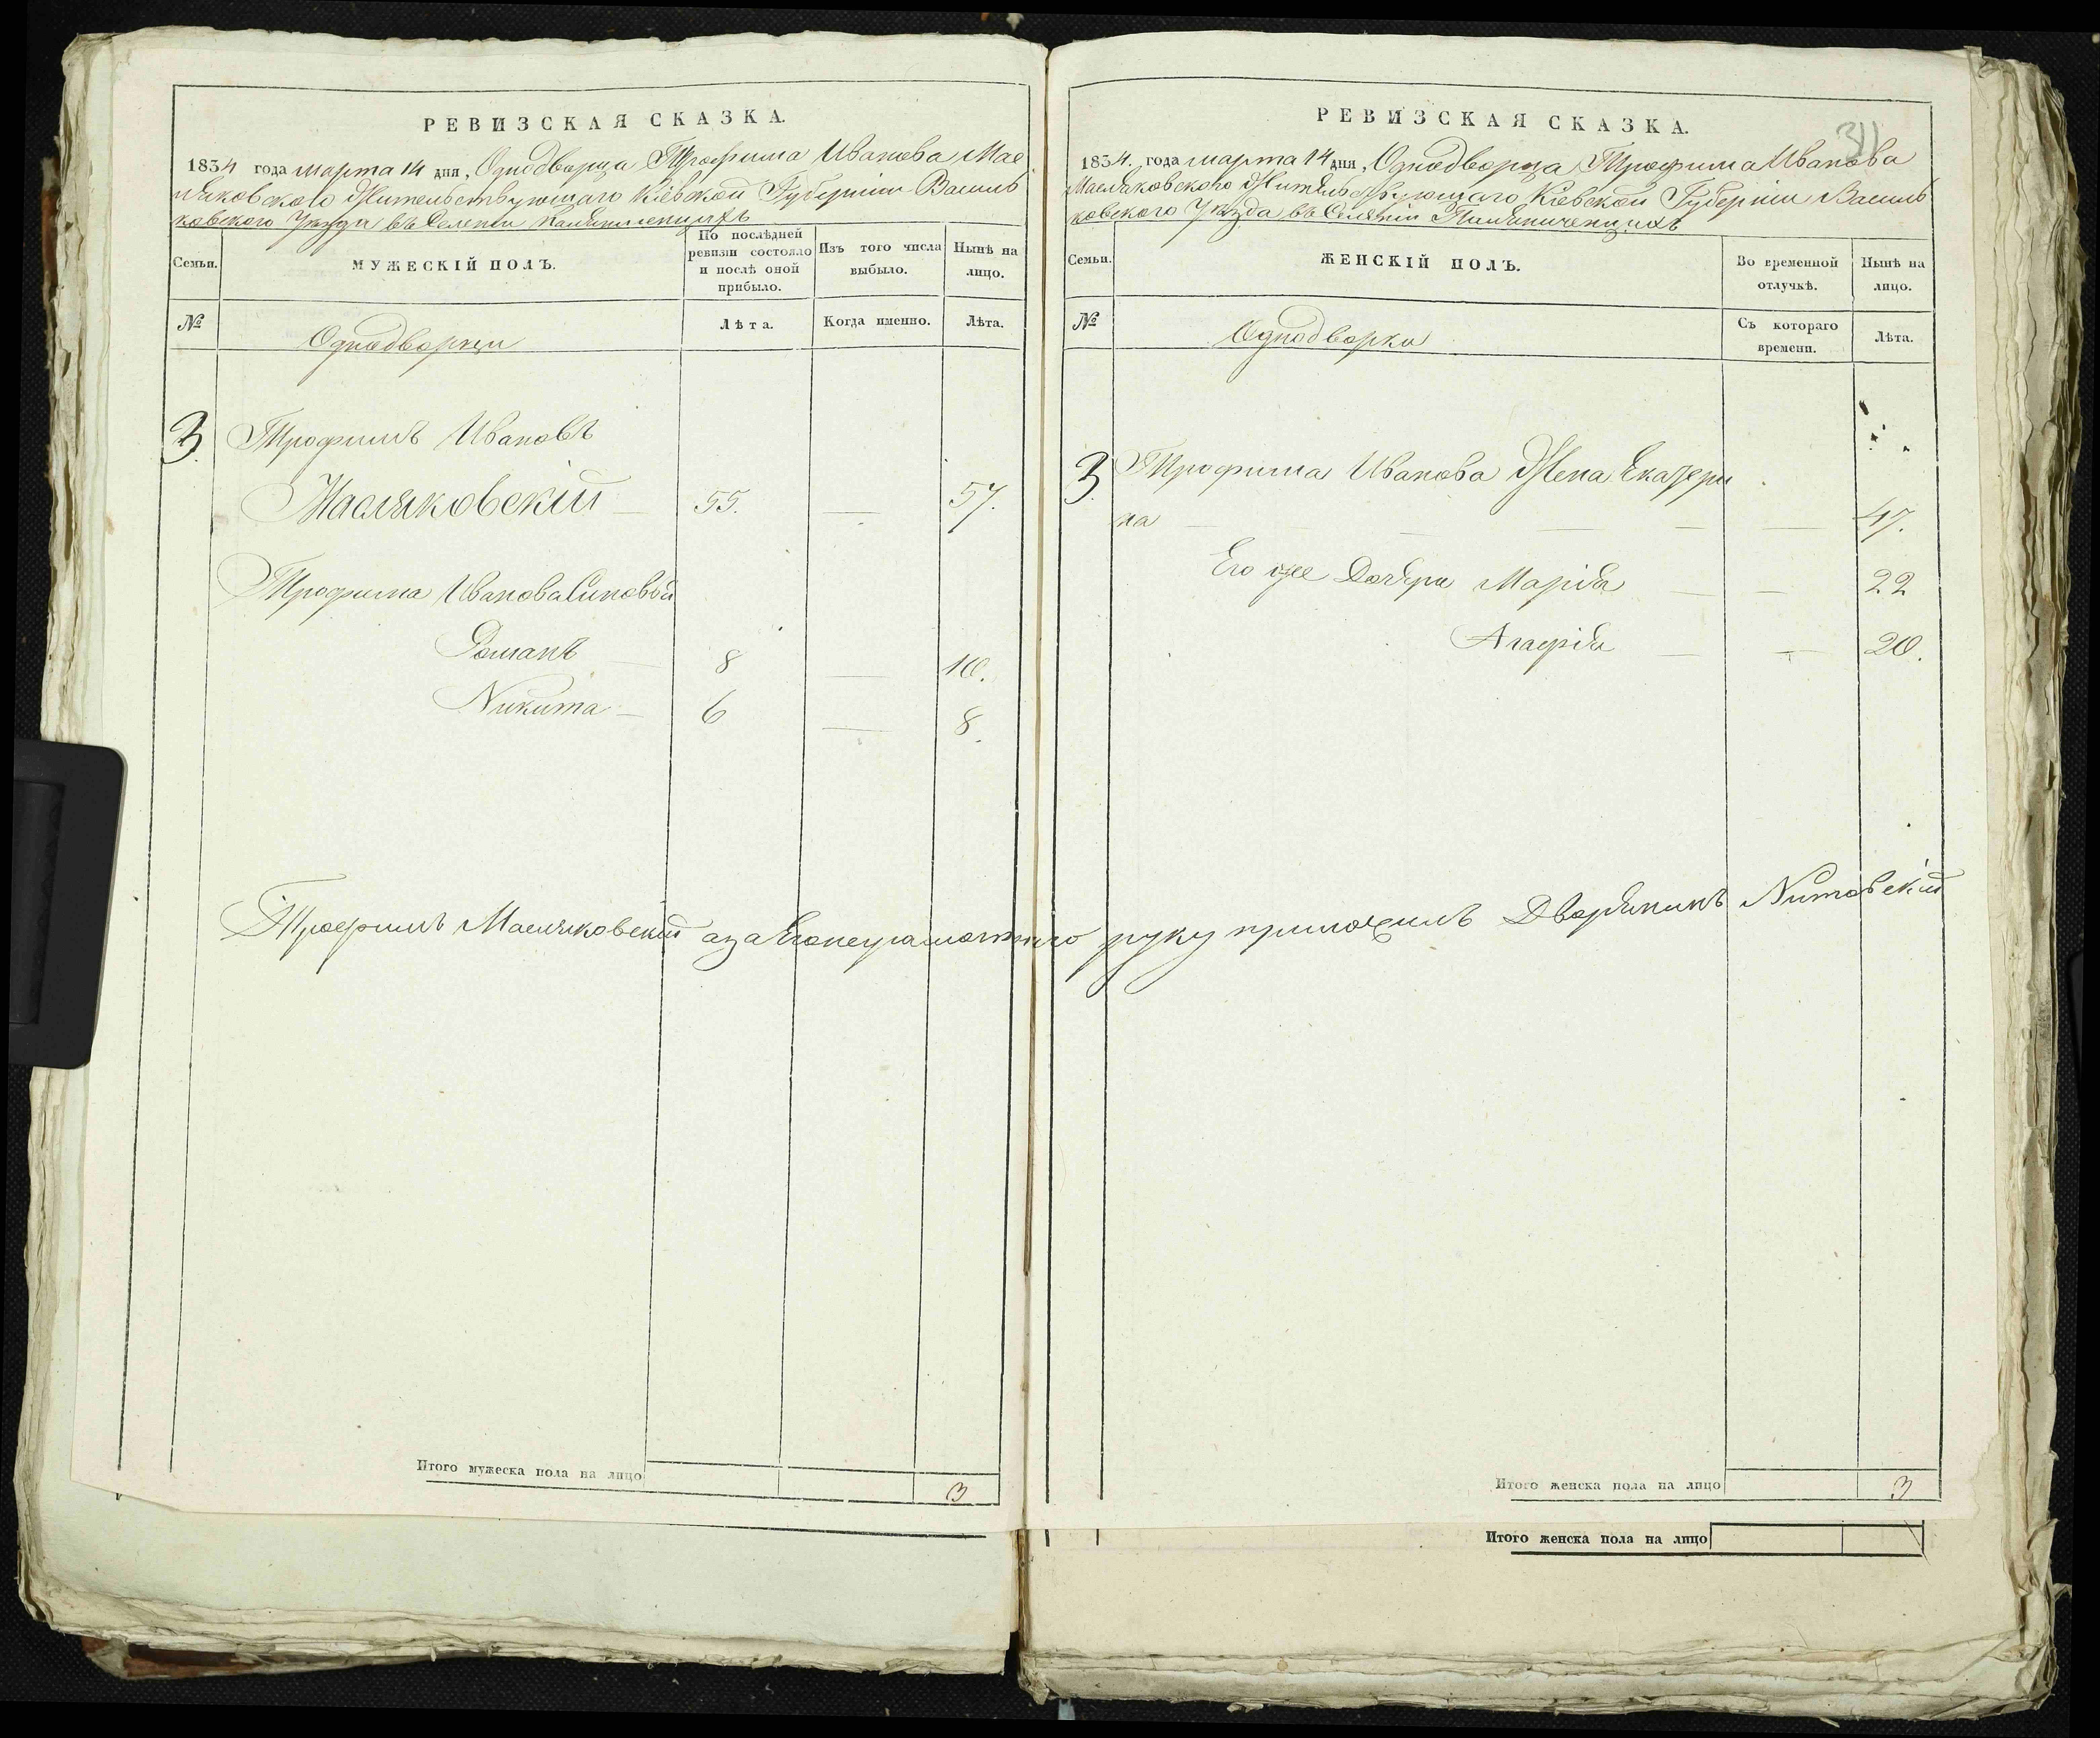 РЕВИЗСКАЯ СКАЗКА.
1834 года марта 14 дня, Однодворца Трофима Иванова Мас
ляковского Жительствующаго Кіевской Губерніи Василь
ковского Уезда въ Селеніи
Семьи.
МУЖЕСКІЙ ПОЛЪ.
По послѣдней ревизіи состояло и послѣ оной прибыло.
Изъ того числа выбыло.
Нынѣ на лицо.
№
Однодворцы
Лѣта.
Когда именно.
Лѣта.
3 Трофимъ Ивановъ
Масляковскій — 55. — 57.
Трофима Иванова Сыновья
Романъ — 8 — 10.
Никита — 6 — 8.
Трофимъ Масляковскій а за Его неграмотного руку приложилъ Дворянинъ
Итого мужеска пола на лицо 3
РЕВИЗСКАЯ СКАЗКА.
311
1834. года марта 14 дня, Однодворца Трофима Иванова
Масляковского Жительствующаго Кіевской Губерніи Василь
ковского Уезда въ Селеніи
Семьи.
ЖЕНСКІЙ ПОЛЪ.
Во временной отлучкѣ.
Нынѣ на лицо.
№
Однодворки
Съ котораго времени.
Лѣта.
3 Трофима Иванова Жена Екатери
на — — — — — 47.
Его же Дочери Марія — — 22
Агафія — — 20.
Итого женска пола на лицо 3
Итого женска пола на лицо